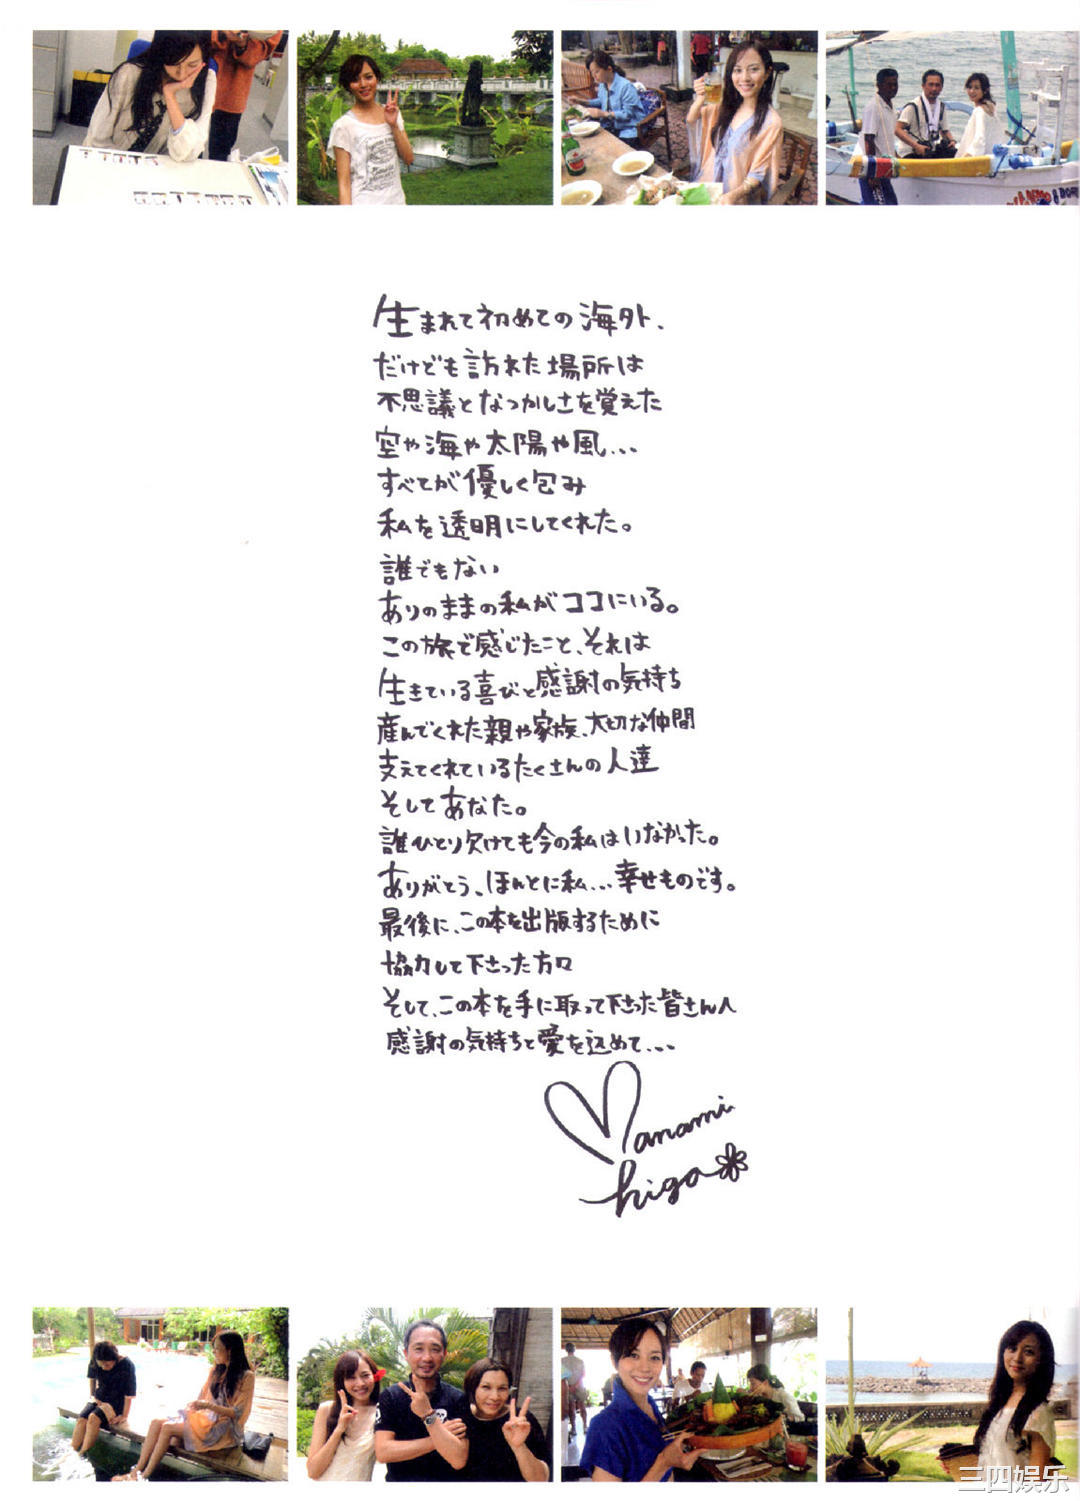 生まれて初めての海外、
だけども訪れた場所は
不思議となつかしさを覚えた
空や海や太陽や風...
すべてが優しく包み
私を透明にしてくれた。
誰でもない
ありのままの私がココにいる。
この旅で感じたこと、それは
生きている喜びと感謝の気持ち
産んでくれた親や家族、大切な仲間
支えてくれているたくさんの人達
そしてあなた。
誰ひとり欠けても今の私はいなかった。
ありがとう、ほんとに私...幸せものです。
最後に、この本を出版するために
協力して下さった方々
そして、この本を手に取って下さった皆さんへ
感謝の気持ちと愛を込めて...
Manami
higa
三四娱乐